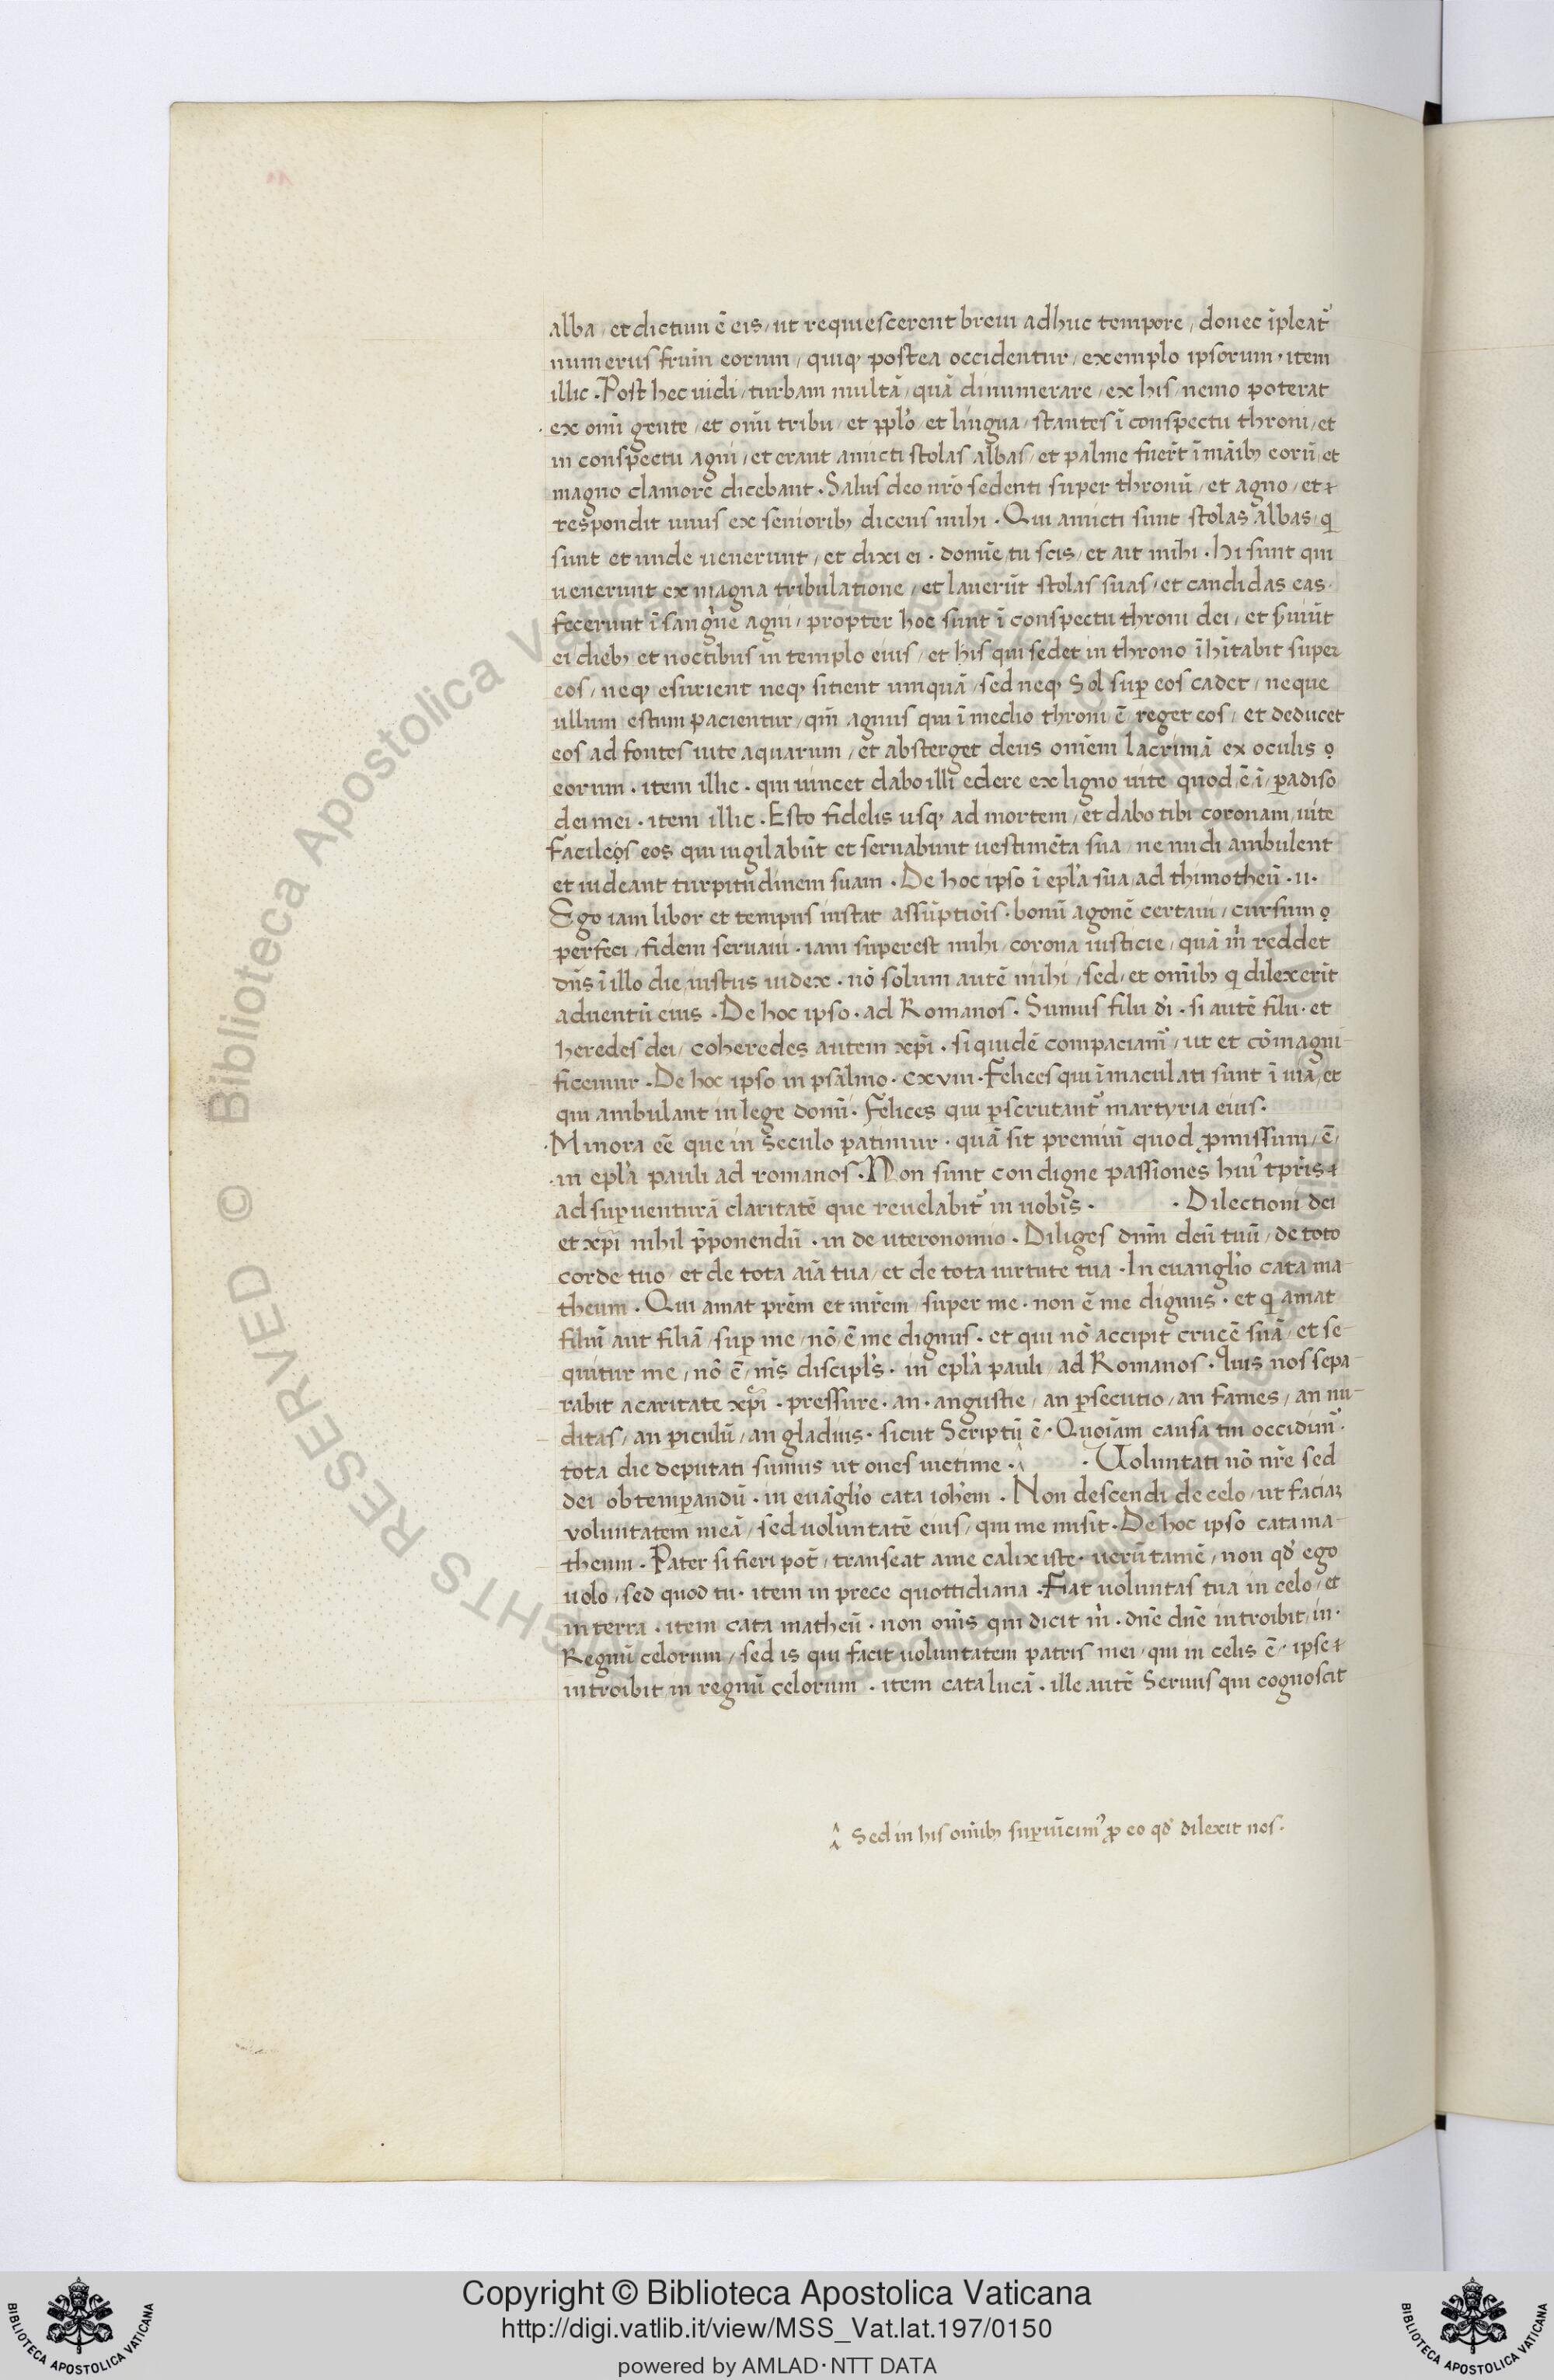 alba / et dictum ē eis / ut requiescerent breui adhuc tempore / donec īpleat᷑
numerus frum̄ eorum / quiqꝫ postea occidentur / exemplo ipsorum · item
illic · Post hec uidi / turbam multā / quā dinumerare / ex his / nemo poterat
ex omi gente / et omi tribu / et pplo et lingua / stantes ī conspectu throni / et
in conspectu agni / et erant amicti stolas albas / et palme fuer̄t ī māibꝫ eorū / et
magno clamore dicebant · Salus deo nr̄o sedenti super thronū / et agno / et
respondit unus ex senioribꝫ dicens mihi · Qui amicti sunt stolas albas / q
sunt et unde uenerunt / et dixi ei · domīe / tu scis / et ait mihi · hi sunt qui
uenerunt ex magna tribulatione / et lauerūt stolas suas / et candidas eas ·
fecerunt ī sangne agni / propter hoc sunt ī conspectu throni dei / et s̄uiūt
ei diebꝫ et noctibus in templo eius / et his qui sedet in throno īhitabit super
eos / neqꝫ esurient neqꝫ sitient umquā / sed neqꝫ Sol suꝑ eos cadet / neque
ullum estum pacientur / qm̄ agnus qui ī medio throni ē reget eos / et deducet
eos ad fontes uite aquarum / et absterget deus omēm lacrimā ex oculis o
eorum · item illic · qui uincet dabo illi edere ex ligno uite quod ē ī / ꝑadiso
dei mei · item illic · Esto fidelis usqꝫ ad mortem / et dabo tibi coronam / uite
Facileos eos qui uigilabūt et seruabunt uestimēta sua / ne nudi ambulent
et uideant turpitudinem suam · De hoc ipso ī epla sua / ad thimotheū · ii ·
Ego iam libor et tempus instat assūptiois · bonū agonē certaui / cursum o
perfeci / fidem seruaui · iam superest mihi / corona iusticie / quā m̄ reddet
dn̄s ī illo die / iustus iudex · nō solum autē mihi / sed / et omibꝫ q dilexerīt
aduentū eius · De hoc ipso · ad Romanos · Sumus filii di · si autē filii · et
heredes dei / coheredes autem xp̄i · si quidē compaciam᷑ / ut et cōmagni-
ficemur · De hoc ipso in psalmo · cxviii · Felices qui īmaculati sunt ī uia / et
qui ambulant in lege domi · Felices qui ꝑscrutant᷑ martyria eius ·
· Minora eē que in seculo patimur · quā sit premiū quod ꝓmissum / ē /
· in epla pauli ad romanos · Non sunt condigne passiones hui᷑ tp̄ris
ad suꝑuenturā claritatē que reuelabit᷑ in nobis · · Dilectioni dei
et xp̄i nihil p̄ponendū · in deuteronomio · Diliges dnm̄ deū tuū / de toto
corde tuo / et de tota aīa tua / et de tota uirtute tua · In euanglio cata ma-
theum · Qui amat prēm et mrēm / super me · non ē me dignus · et q amat
filiū aut filiā / suꝑ me / nō ē me dignus · et qui nō accipit crucē suā / et se-
quitur me / nō ē / ms̄ discipls · in epla pauli / ad Romanos · Quis nos sepa-
rabit a caritate xp̄i · pressure · an · angustie / an ꝑsecutio / an fames / an nu-
ditas / an ꝑiculū / an gladius · sicut Scriptū ē · Quoiam causa tui occidim᷑ ·
tota die deputati sumus ut oues uictime · · Uoluntati nō nr̄e sed
dei obtemꝑandū · in euāglio cata iohem · Non descendi de celo / ut faciaꝫ
voluntatem meā / sed uoluntatē eius / qui me misit · De hoc ipso cata ma-
theum · Pater si fieri pot̄ / transeat a me calix iste · uerū tamē / non qd ego
uolo / sed quod tu · item in prece quottidiana · Fiat uoluntas tua in celo / et
in terra · item cata matheū · non omis qui dicit m̄ · dn̄e dn̄e introibit / in ·
Regnū celorum / sed is qui facit uoluntatem patris mei / qui in celis ē · ipse
introibit in regnū celorum · item cata lucā · ille autē Seruus qui cognoscit
Sed in his omibꝫ suꝑuīcim᷑ ꝓ eo qd dilexit nos ·
Biblioteca Apostolica Vaticana
RIGHTS RESERVED ©
Copyright © Biblioteca Apostolica Vaticana
http://digi.vatlib.it/view/MSS_Vat.lat.197/0150
powered by AMLAD·NTT DATA
BIBLIOTECA APOSTOLICA VATICANA
BIBLIOTECA APOSTOLICA VATICANA